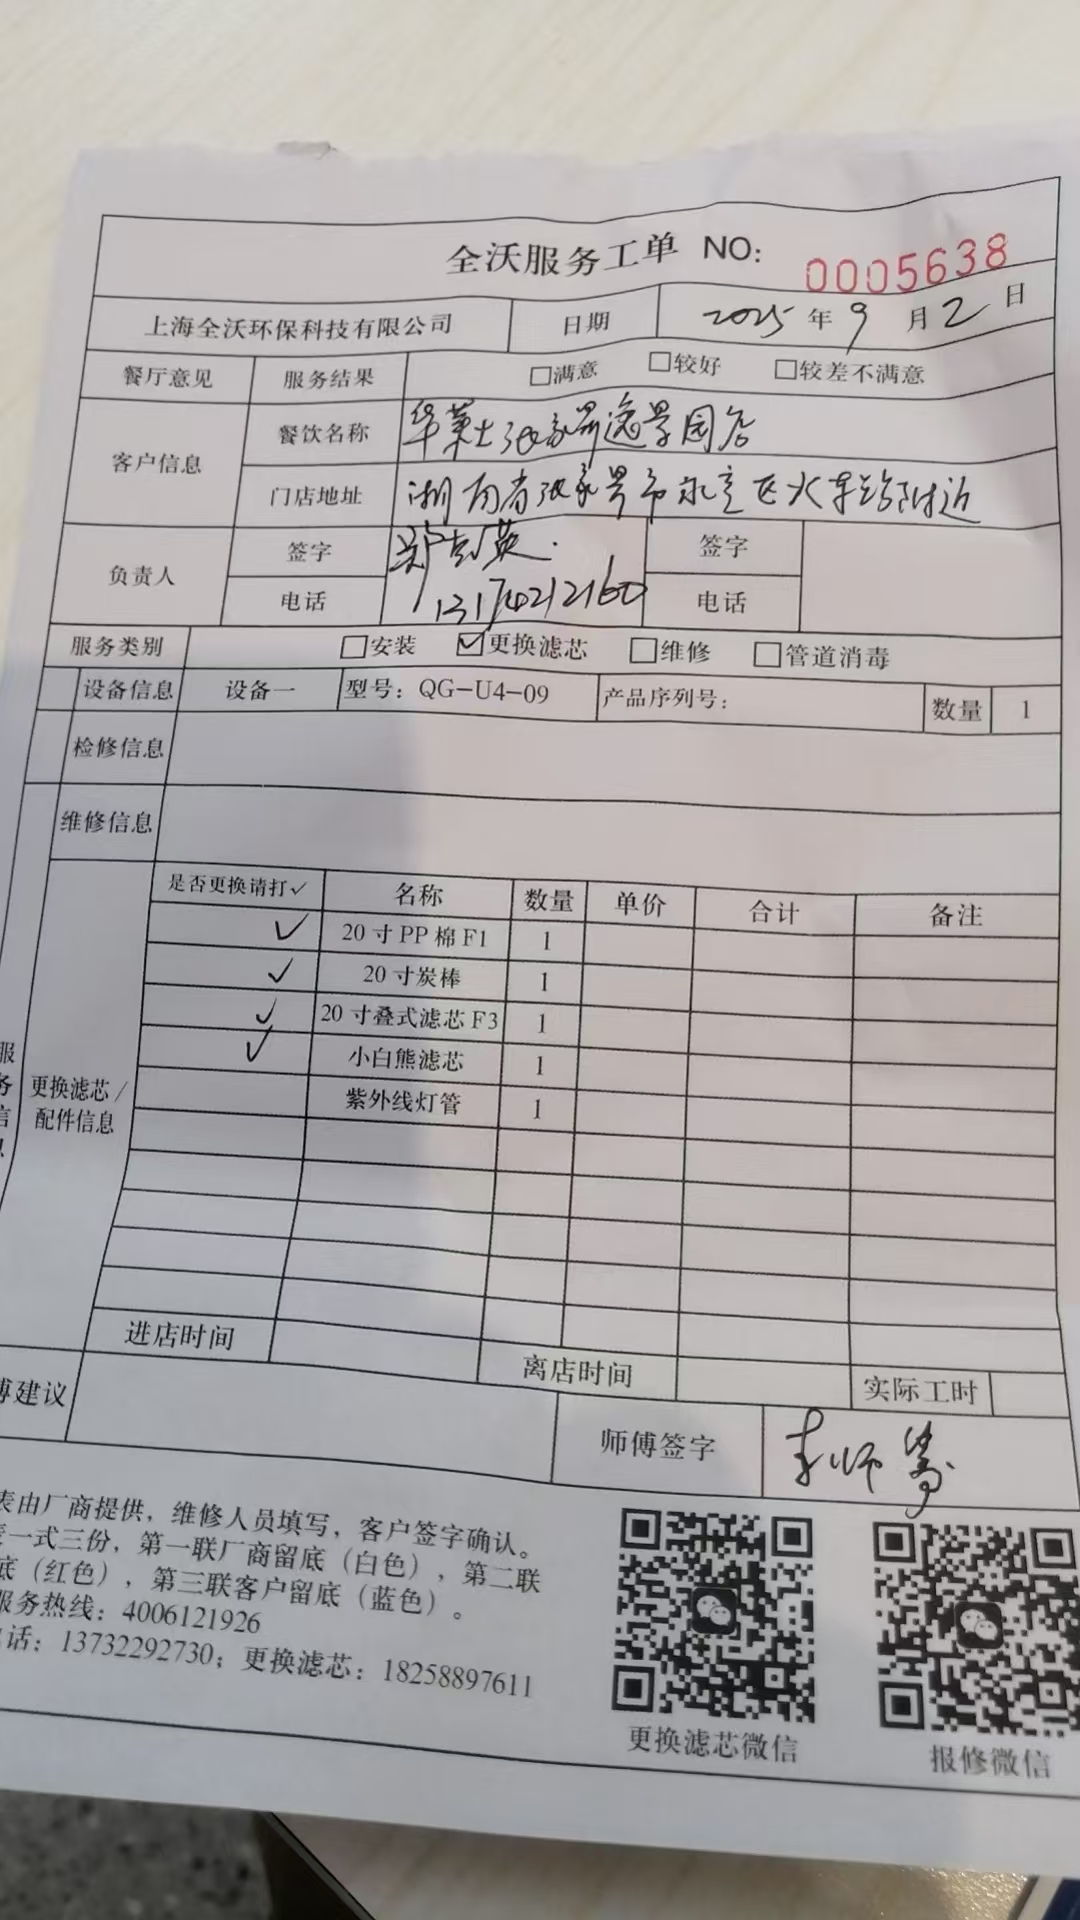 全沃服务工单 NO: 0005638
上海全沃环保科技有限公司 日期 2025年9月2日
餐厅意见 服务结果 □满意 □较好 □较差不满意
客户信息 餐饮名称 华莱士张家界逸景园店
门店地址 湖南省张家界市永定区火车站附近
负责人 签字 签字
电话 13174212160 电话
服务类别 □安装 ☑更换滤芯 □维修 □管道消毒
设备信息 设备一 型号: QG-U4-09 产品序列号: 数量 1
检修信息
维修信息
是否更换请打✓ 名称 数量 单价 合计 备注
✓ 20寸PP棉F1 1
✓ 20寸炭棒 1
✓ 20寸叠式滤芯F3 1
✓ 小白熊滤芯 1
紫外线灯管 1
更换滤芯/
配件信息
服务信息
进店时间 离店时间 实际工时
傅建议 师傅签字 李师傅
表由厂商提供，维修人员填写，客户签字确认。
一式三份，第一联厂商留底（白色），第二联
底（红色），第三联客户留底（蓝色）。
服务热线: 4006121926
电话: 13732292730; 更换滤芯: 18258897611
更换滤芯微信 报修微信